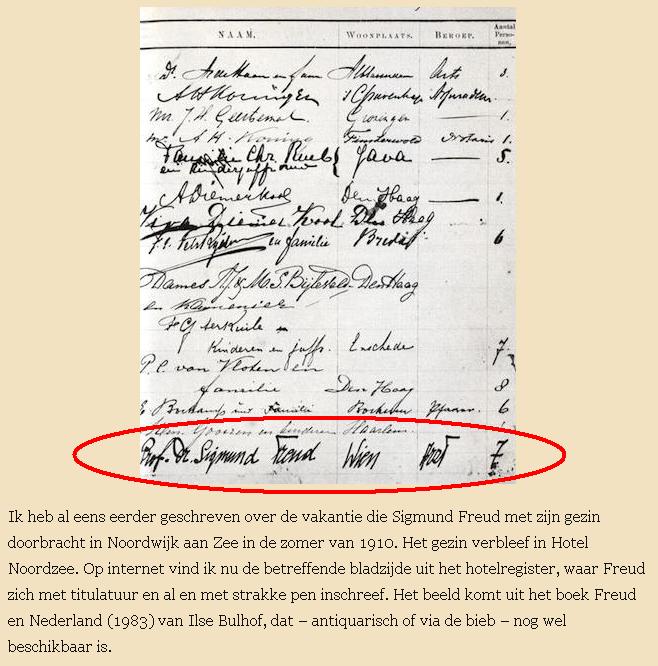 NAAM. WOONPLAATS. BEROEP. Aantal Perso-nen.
Dr. en fam Arts 3.
A W Koningen
Mr. J. H. Groningen — 1.
Mr. A. H. Koning Finsterwold Notaris 1.
Familie Chr. Rueb Java — 5.
en kinderjuffrouw
A Diemer Kool Den Haag — 1.
Diemer Kool Den Haag
en familie Breda 6
Dames & M. S. Bijleveld Den Haag
en Kamenier
F C J terKuile en
Kinderen en juffr. Enschede 7.
P. C. van Vloten en
familie Den Haag 8
und Familie 6
en kinderen Haarlem
Prof. Dr. Sigmund Freud Wien Arzt 7
Ik heb al eens eerder geschreven over de vakantie die Sigmund Freud met zijn gezin
doorbracht in Noordwijk aan Zee in de zomer van 1910. Het gezin verbleef in Hotel
Noordzee. Op internet vind ik nu de betreffende bladzijde uit het hotelregister, waar Freud
zich met titulatuur en al en met strakke pen inschreef. Het beeld komt uit het boek Freud
en Nederland (1983) van Ilse Bulhof, dat – antiquarisch of via de bieb – nog wel
beschikbaar is.